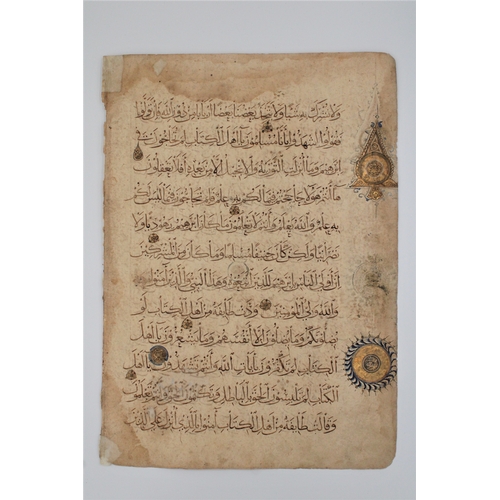 ولا نشرك به شيئا ولا يتخذ بعضنا بعضا اربابا من دون الله فان تولوا
فقولوا اشهدوا بانا مسلمون يا اهل الكتاب لم تحاجون في
ابرهيم وما انزلت التورية والانجيل الا من بعده افلا تعقلون
ها انتم هولاء حاججتم فيما لكم به علم فلم تحاجون فيما ليس لكم
به علم والله يعلم وانتم لا تعلمون ما كان ابرهيم يهوديا ولا
نصرانيا ولكن كان حنيفا مسلما وما كان من المشركين
ان اولى الناس بابرهيم للذين اتبعوه وهذا النبي والذين امنوا
والله ولي المومنين ودت طايفة من اهل الكتاب لو
يضلونكم وما يضلون الا انفسهم وما يشعرون يا اهل
الكتاب لم تكفرون بايات الله وانتم تشهدون يا اهل
الكتاب لم تلبسون الحق بالباطل وتكتمون الحق وانتم تعلمون
وقالت طايفة من اهل الكتاب امنوا بالذي انزل على الذين